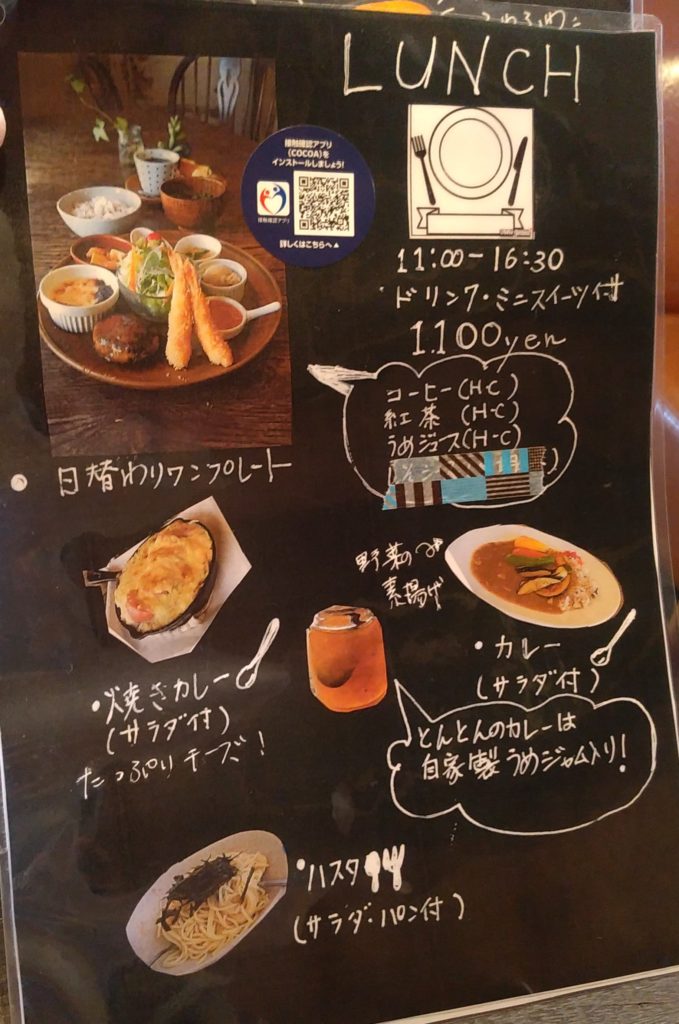 LUNCH
接触確認アプリ
(COCOA)を
インストールしましょう!
接触確認アプリ
詳しくはこちらへ▲
11:00-16:30
ドリンク・ミニスイーツ付
1.100yen
コーヒー(H・C)
紅茶 (H・C)
うめジュース(H・C)
日替わりワンプレート
野菜の
素揚げ
・カレー
(サラダ付)
・焼きカレー
(サラダ付)
たっぷりチーズ!
とんとんのカレーは
自家製うめジャム入り!
・パスタ
(サラダ・パン付)